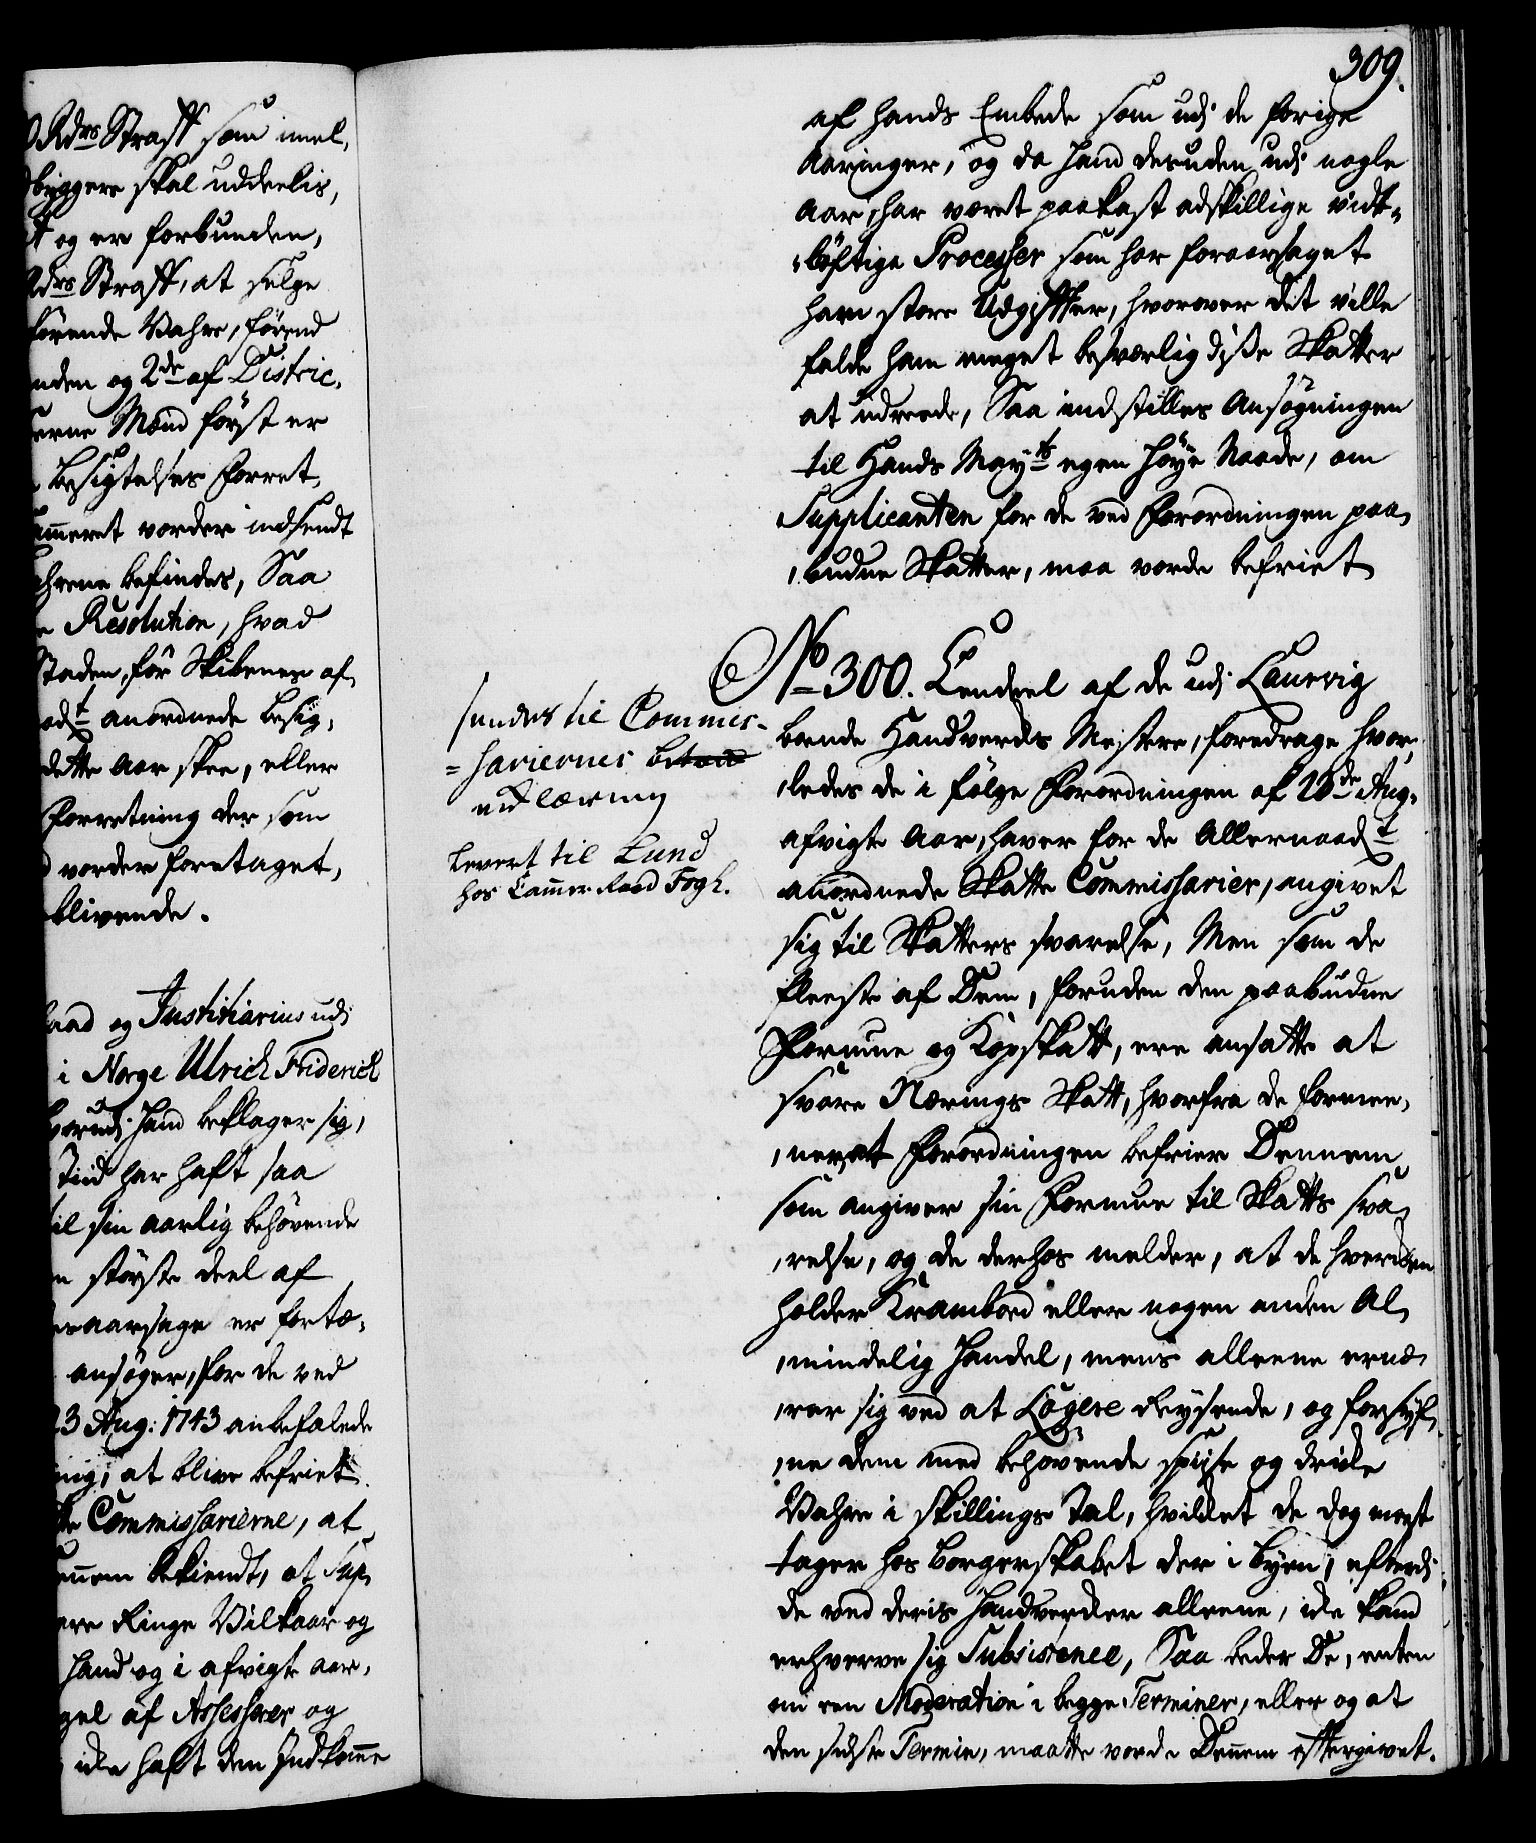 0 Rdrs Straff som imel,
bÿggere skal uddeelis,
t og er forbunden,
Rdrs Straff, at selge
hörende Vahre, förend
nden og 2de af Distric,
erne Mænd först er
Besigtelses Forret,
ammeret vorder indsendt
ahrene befindes, Saa
e Resolution, hvad
Staden, för Skibenes af,
ad.t anordnede Besig,
dette Aar skee, eller
Forretning der som
d vorder foretaget,
blivende.
aad og Justitiarius udi
i Norge Ulrich Friderich
hvorudi Hand beklager sig,
Tiid har haft saa
til sin aarlig behövende
n störste deel af
aarsage er fortæ,
ansöger, for de ved
23 Aug: 1743 anbefalede
ning, at blive befriet.
te Commissarierne, at
ennem bekiendt, at Sup,
ere Ringe Vilkaar og
Hand og i afvigte aar,
gel af Assessorer og
icke haft den Indkomme
309.
af hands Embede som udi de forige
Aaringer, og da hand desuden udi nogle
Aar, har været paakast adskillige vidt=
=löftige Processer som har foraarsaget
ham store Udgiffter, hvorover det ville
falde ham meget besværlig diße Skatter
at udreede, Saa indstilles Ansögningen
til Hands May:ts egen höye Naade, om
Supplicanten for de ved Forordningen paa,
,budne Skatter, maa vorde befriet
No 300. Eendeel af de udi Laurvig
boende Handverks Mestere, foredrage hvor,
,ledes de i fölge Forordningen af 23de Aug.
afvigte Aar, haver for de Allernaad.t
anordnede Skatte Commissarier, angivet
sig til Skatters svarelse, Men som de
fleeste af Dem, foruden den paabudne
Formue og Kopskatt, ere ansatte at
svare Nærings Skatt, hvorfra de formee,
,ner, at Forordningen befrier Dennem
som angiver sin Formue til Skatts sva,
,relse, og de derhos melder, at de hverken
holder Krambod eller nogen anden Al,
,mindelig Handel, mens alleene ernæ,
,rer sig ved at Logere Reÿsende, og forsÿ,
,ne dem med behövende spiise og dricke
Vahre i skillings Tal, hvilcket de dog meest
tager hos Borgerskabet der i Byen, efterdi
de ved deris Handvercker alleene, icke kand
erhverve sig Subsistence, Saa beder De, enten
om een Moderation i begge Terminer, eller og at
den sidste Termin, maatte vorde Dennem effter givet.
sendes til Commis-
=sariernes betæn
erklæring
Levert til Lund
hos Cammer Raad Fogh.